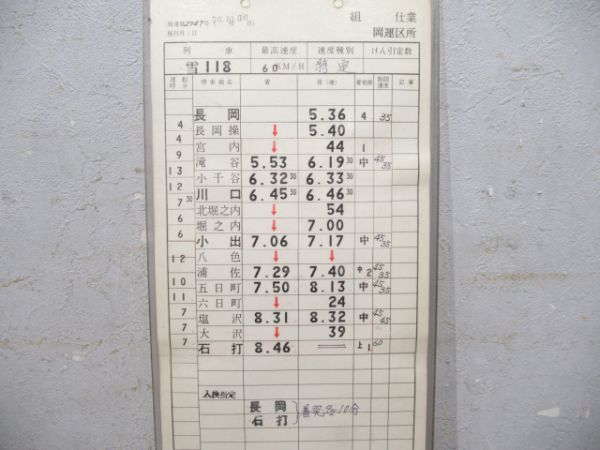 組 仕業
岡運区所
列車 最高速度 速度種別 けん引定数
雪118 60KM/H 特定
運転時分 停車場名 着 発(通) 着発線 制限速度 記事
長岡 5.36 4 35
4
長岡操 ↓ 5.40
4
宮内 ↓ 44 1
9
滝谷 5.53 6.19 30 中 45 35
13
小千谷 6.32 30 6.33 30
12
川口 6.45 30 6.46 30
7 30
北堀之内 ↓ 54
6
堀之内 ↓ 7.00
6
小出 7.06 7.17 中 45 35
八色 ↓ ↓
12
浦佐 7.29 7.40 中2 45 35
10
五日町 7.50 8.13 中 45 35
11
六日町 ↓ 24
7
塩沢 8.31 8.32 中 45 45
7
大沢 ↓ 39
7
石打 8.46 上1 60
入換指定
長岡
石打 10分